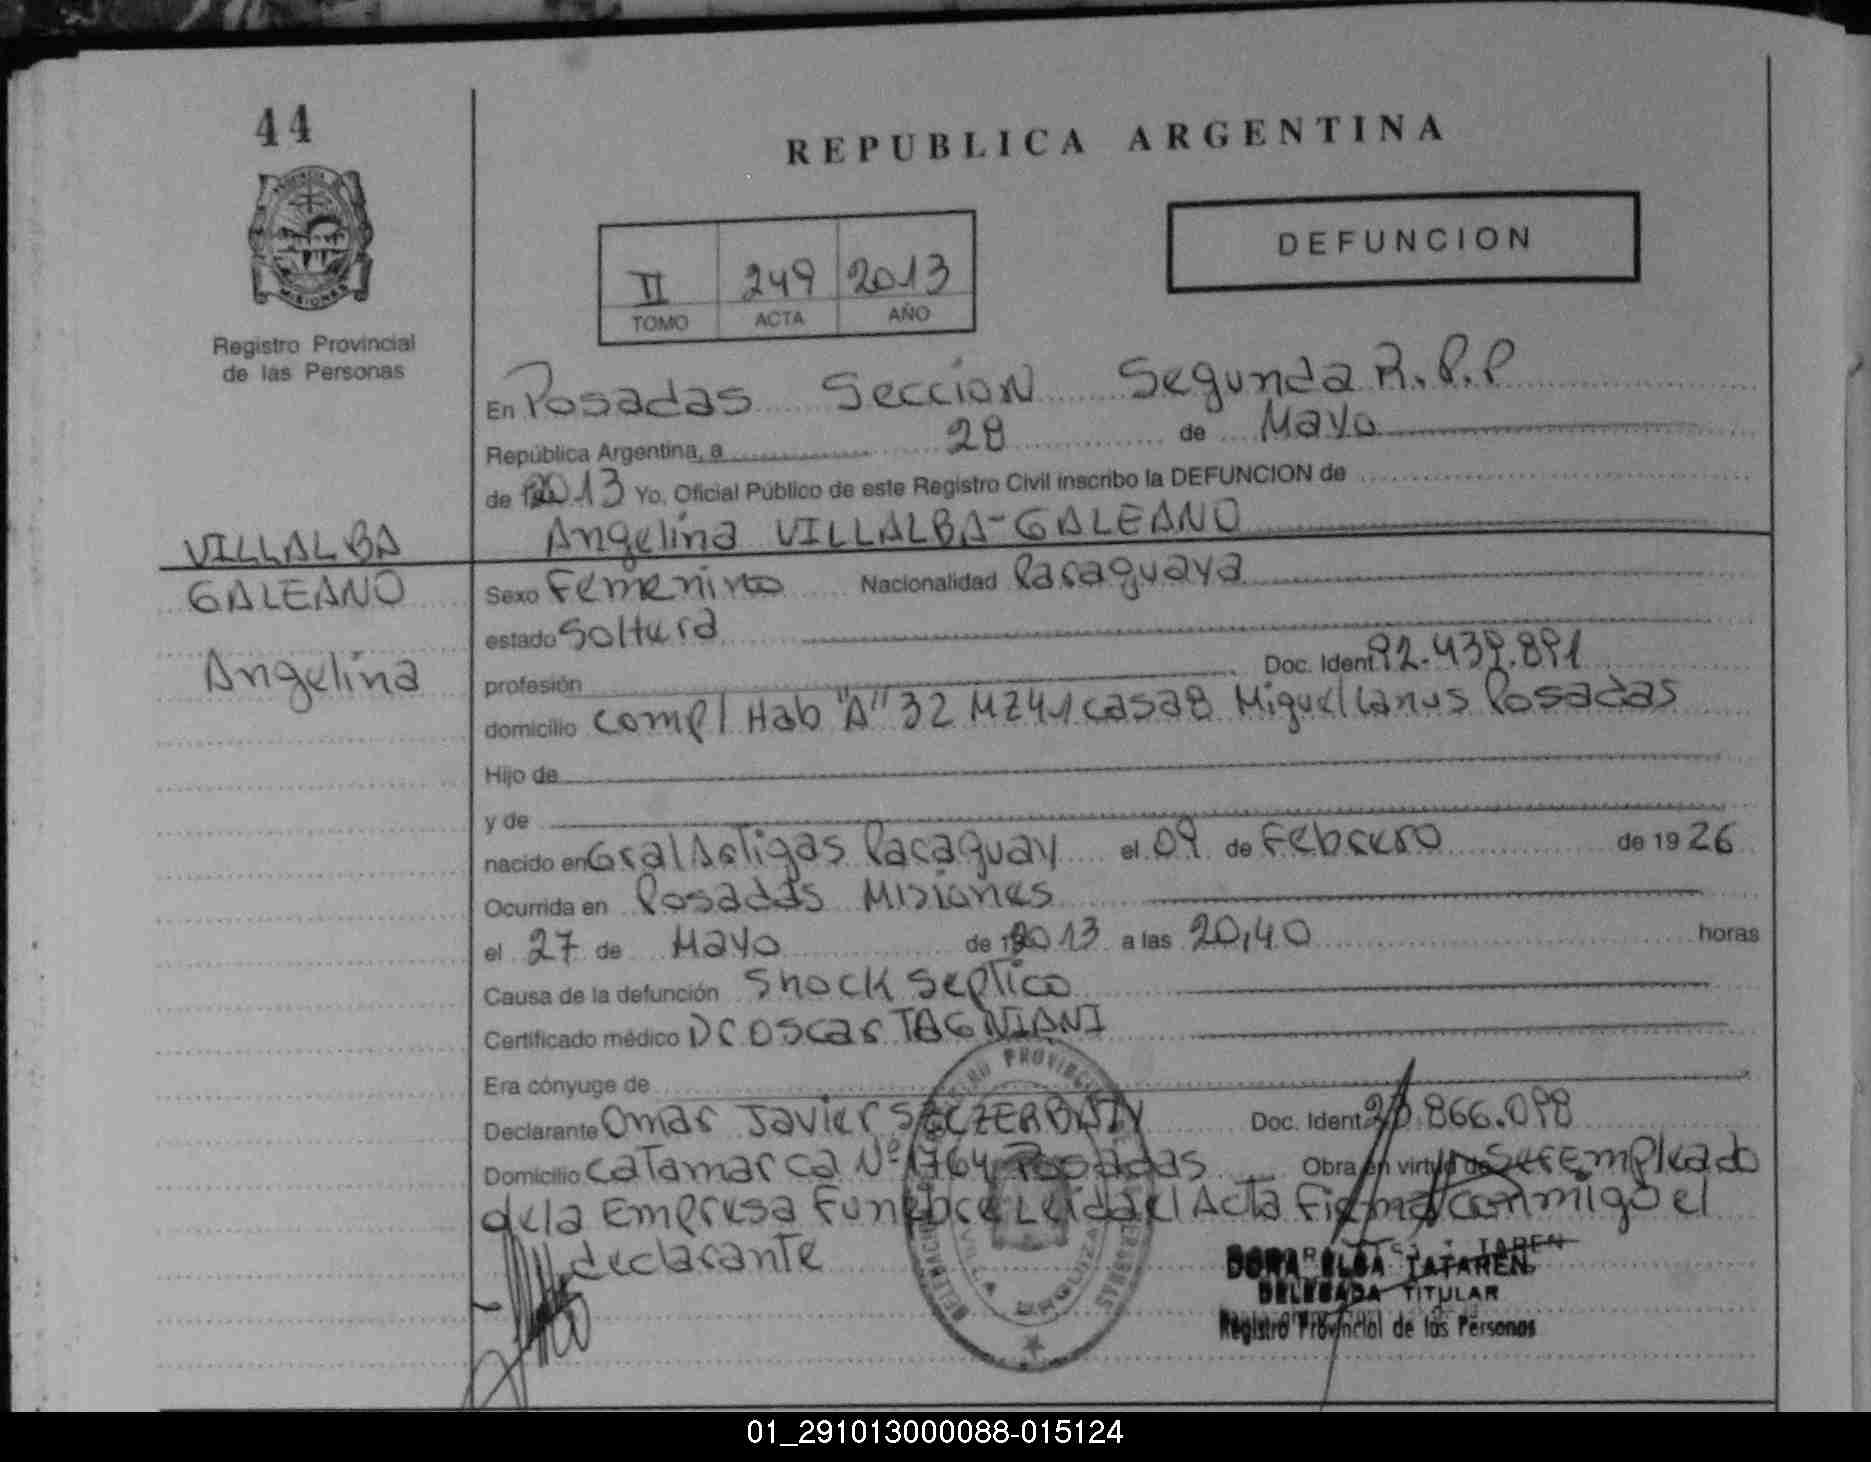 44
REPUBLICA ARGENTINA
DEFUNCION
II 249 2013
TOMO ACTA AÑO
MISIONES
Registro Provincial
de las Personas
En Posadas Seccion Segunda R.P.P
República Argentina, a 28 de Mayo
de 2013 Yo, Oficial Público de este Registro Civil inscribo la DEFUNCION de
VILLALBA Angelina VILLALBA-GALEANO
GALEANO Sexo Femenino Nacionalidad Paraguaya
estado Soltera
Angelina profesión Doc. Ident 92.439.891
domicilio Compl Hab "A" 32 MZ41 casa8 Miguel Lanus Posadas
Hijo de
y de
nacido en Gral Artigas Paraguay el 09 de Febrero de 1926
Ocurrida en Posadas Misiones
el 27 de Mayo de 2013 a las 20,40 horas
Causa de la defunción Shock Septico
Certificado médico Dr Oscar TAGNIANI
Era cónyuge de
Declarante Omar Javier Doc. Ident 866.098
Domicilio Catamarca Nº 1764 Posadas Obra en virtud de Ser empleado
de la Empresa Funebre Leida el Acta Firma conmigo el
declarante
DORA ELSA TATAREN
DELEGADA TITULAR
Registro Provincial de las Personas
01_291013000088-015124